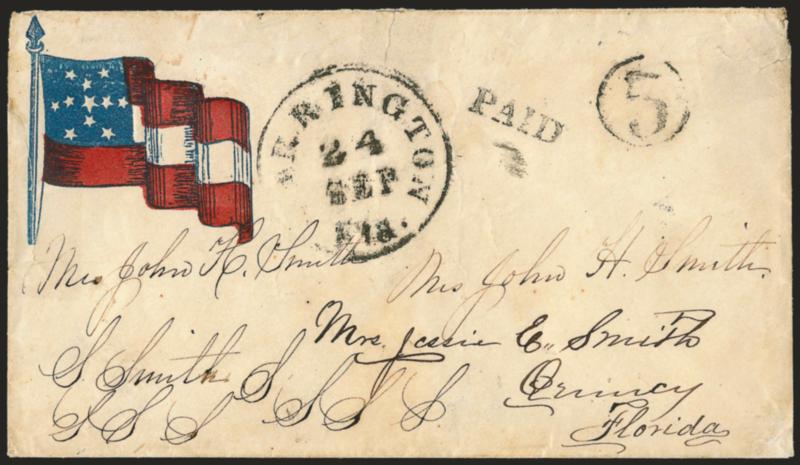 RRINGTON
24
SEP
Fla.
PAID
5
Mrs John H. Smith
Mrs John H. Smith.
Mrs. Jessie E. Smith
S. Smith S
Quincy
S S S S S S
Florida